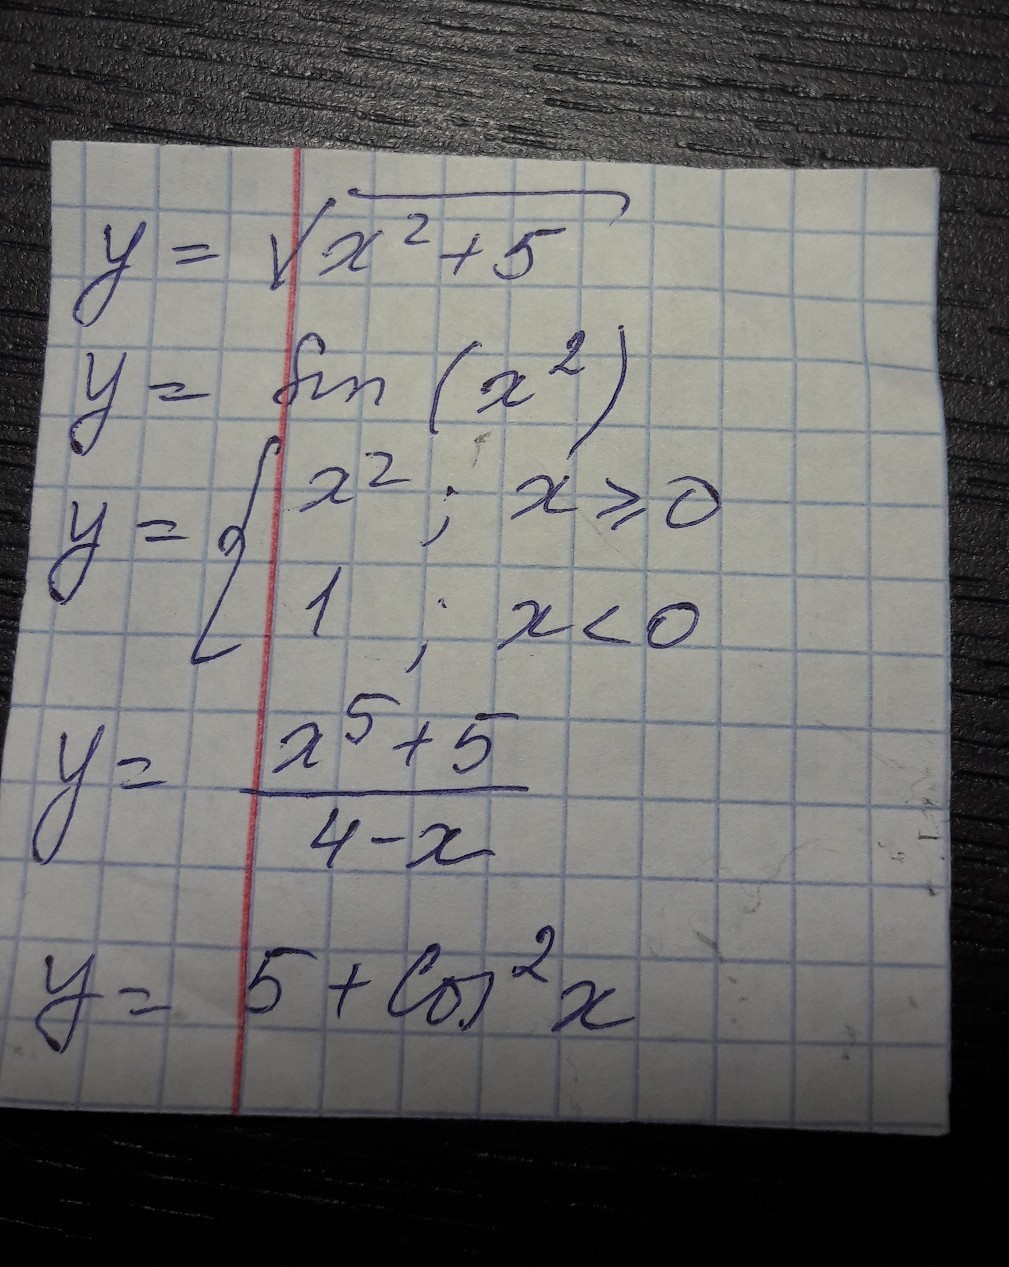 y = √(x² + 5)
y = sin (x²)
y = { x² ; x ⩾ 0
1 ; x < 0
y = (x⁵ + 5) / (4 - x)
y = 5 + Cos² x